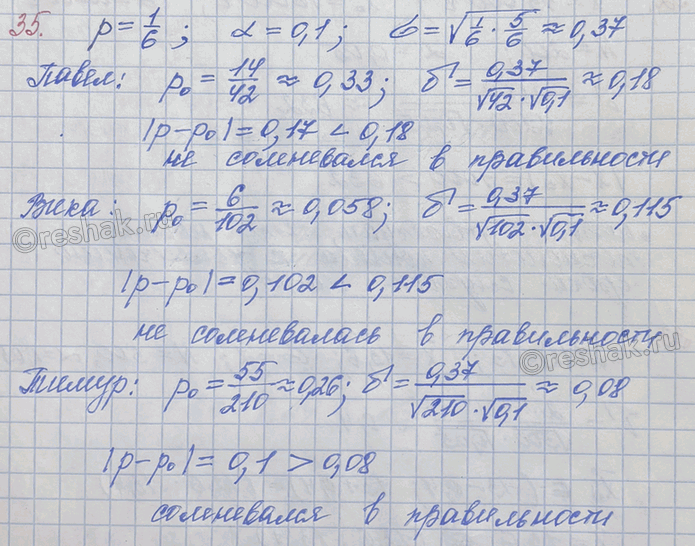 35. p = 1/6 ; α = 0,1 ; σ = √(1/6 · 5/6) ≈ 0,37
Павел: p₀ = 14/42 ≈ 0,33 ; δ = 0,37/(√42 · √0,1) ≈ 0,18
|p - p₀| = 0,17 < 0,18
не сомневался в правильности
Вика: p₀ = 6/102 ≈ 0,058 ; δ = 0,37/(√102 · √0,1) ≈ 0,115
©reshak.ru
|p - p₀| = 0,102 < 0,115
не сомневалась в правильности
©reshak.ru
Тимур: p₀ = 55/210 ≈ 0,26 ; δ = 0,37/(√210 · √0,1) ≈ 0,08
|p - p₀| = 0,1 > 0,08
сомневался в правильности